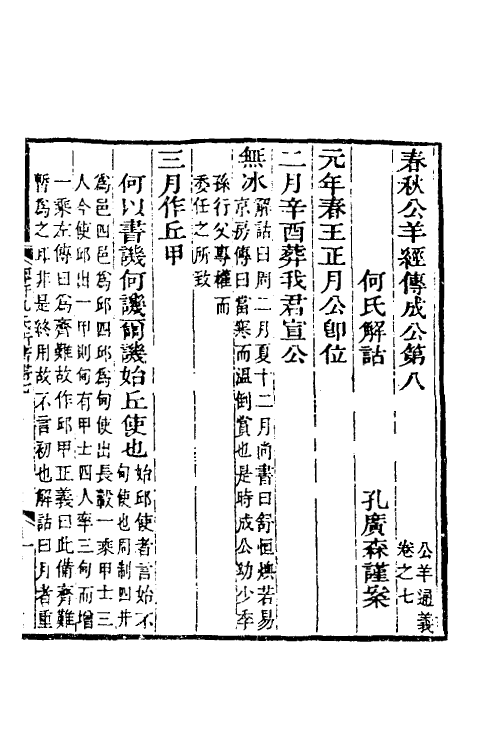 春秋公羊經傳成公第八
公羊通義
卷之七
何氏解詁
孔廣森謹案
元年春王正月公卽位
二月辛酉葬我君宣公
無冰
解詁曰周二月夏十二月尚書曰舒恒燠若易
京房傳曰當寒而溫倒賞也是時成公幼少季
孫行父專權而
委任之所致
三月作丘甲
何以書譏何譏爾譏始丘使也
始邱使者言始不
甸使也周制四井
爲邑四邑爲邱四邱爲甸使出長轂一乘甲士三
人今使邱出一甲則甸有甲士四人率三甸而增
一乘左傳曰爲齊難故作邱甲正義曰此備齊難
暫爲之耳非是終用故不言初也解詁曰月者重